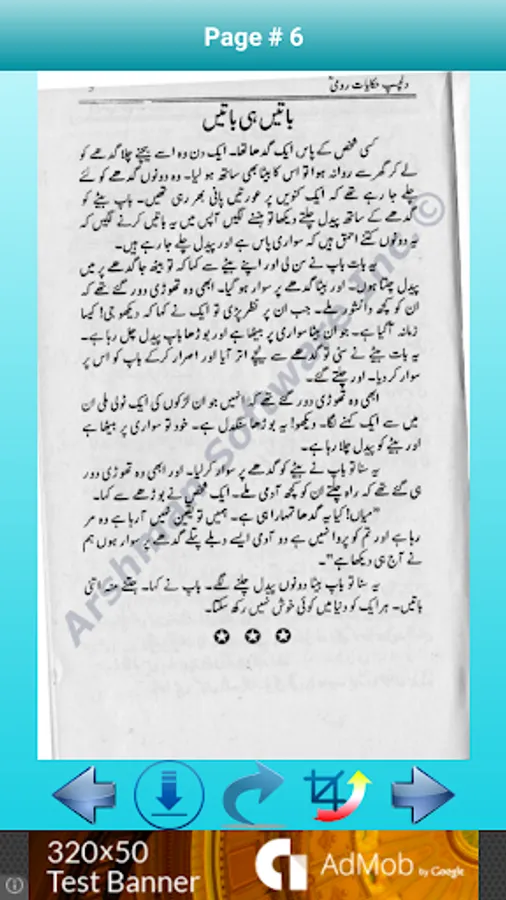 Page # 6
دلچسپ حکایات رومیؒ
باتیں ہی باتیں
کسی شخص کے پاس ایک گدھا تھا۔ ایک دن وہ اسے بیچنے چلا گدھے کو
لے کر گھر سے روانہ ہوا تو اس کا بیٹا بھی ساتھ ہو لیا۔ وہ دونوں گدھے کو لئے
چلے جا رہے تھے کہ ایک کنویں پر عورتیں پانی بھر رہی تھیں۔ باپ بیٹے کو
گدھے کے ساتھ پیدل چلتے دیکھا تو ہنسنے لگیں آپس میں یہ باتیں کرنے لگیں کہ
یہ دونوں کتنے احمق ہیں کہ سواری پاس ہے اور پیدل چلے جا رہے ہیں۔
یہ بات باپ نے سن لی اور اپنے بیٹے سے کہا کہ تو بیٹھ جا گدھے پر میں
پیدل چلتا ہوں۔ اور بیٹا گدھے پر سوار ہو گیا۔ ابھی وہ تھوڑی دور گئے تھے کہ
ان کو کچھ دانشور ملے۔ جب ان پر نظر پڑی تو ایک نے کہا کہ دیکھو جی! کیسا
زمانہ آ گیا ہے۔ جوان بیٹا سواری پر بیٹھا ہے اور بوڑھا باپ پیدل چل رہا ہے۔
یہ بات بیٹے نے سنی تو گدھے سے نیچے اتر آیا اور اصرار کرکے باپ کو اس پر
سوار کر دیا۔ اور چلتے گئے۔
ابھی وہ تھوڑی دور گئے تھے کہ انہیں جوان لڑکوں کی ایک ٹولی ملی ان
میں سے ایک کہنے لگا۔ دیکھو! یہ بوڑھا سنگدل ہے۔ خود تو سواری پر بیٹھا ہے
اور بیٹے کو پیدل چلا رہا ہے۔
یہ سنا تو باپ نے بیٹے کو گدھے پر سوار کر لیا۔ اور ابھی وہ تھوڑی دور
ہی گئے تھے کہ راہ چلتے ان کو کچھ آدمی ملے۔ ایک شخص نے بوڑھے سے کہا۔
"میاں! کیا یہ گدھا تمہارا ہی ہے۔ ہمیں تو یقین نہیں آ رہا ہے وہ مر
رہا ہے اور تم کو پروا نہیں ہے دو آدمی ایسے دبلے پتلے گدھے پر سوار ہوں ہم
نے آج ہی دیکھا ہے"۔
یہ سنا تو باپ بیٹا دونوں پیدل چلنے لگے۔ باپ نے کہا۔ جتنے منہ اتنی
باتیں۔ ہر ایک کو دنیا میں کوئی خوش نہیں رکھ سکتا۔
Arshman Software Inc.©
320×50
Test Banner
AdMob by Google